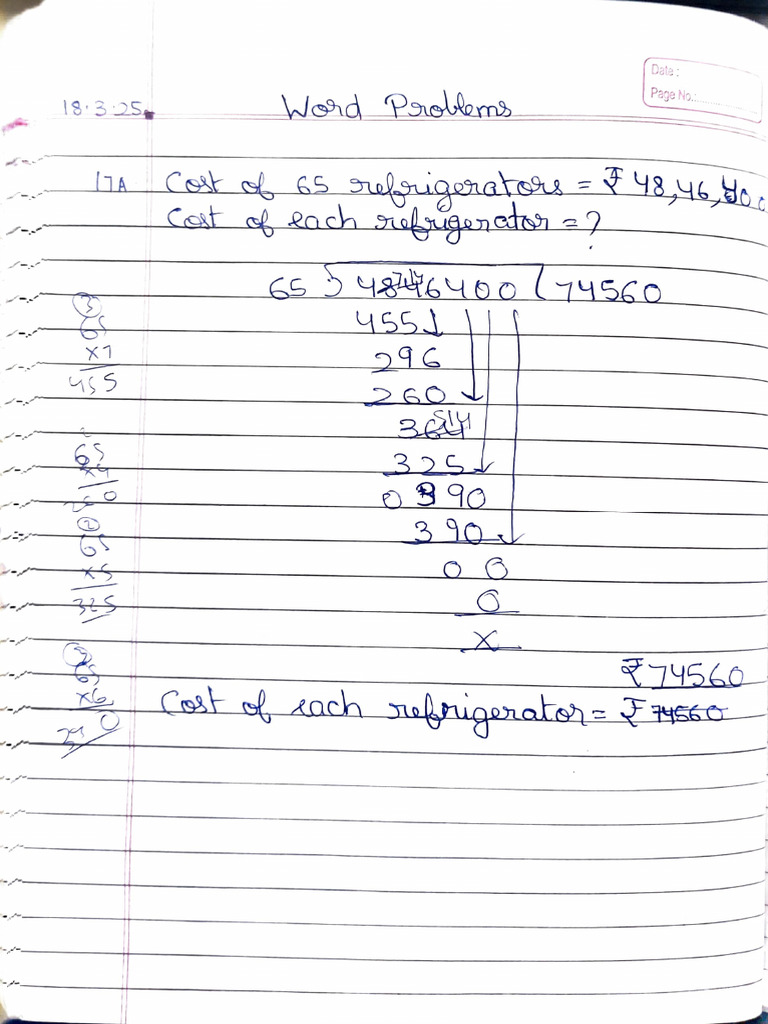 Date :
Page No.:
18.3.25
Word Problems
17A Cost of 65 refrigerators = ₹ 48,46,400
Cost of each refrigerator = ?
65 ) 4846400 ( 74560
455
296
260
364
325
0390
390
00
0
x
③
65
x7
455
65
x4
260
②
65
x5
325
③
65
x6
390
₹74560
Cost of each refrigerator = ₹ 74560